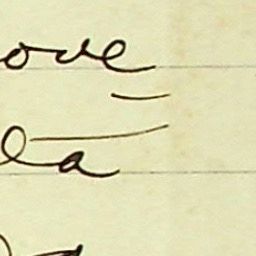 ove
la